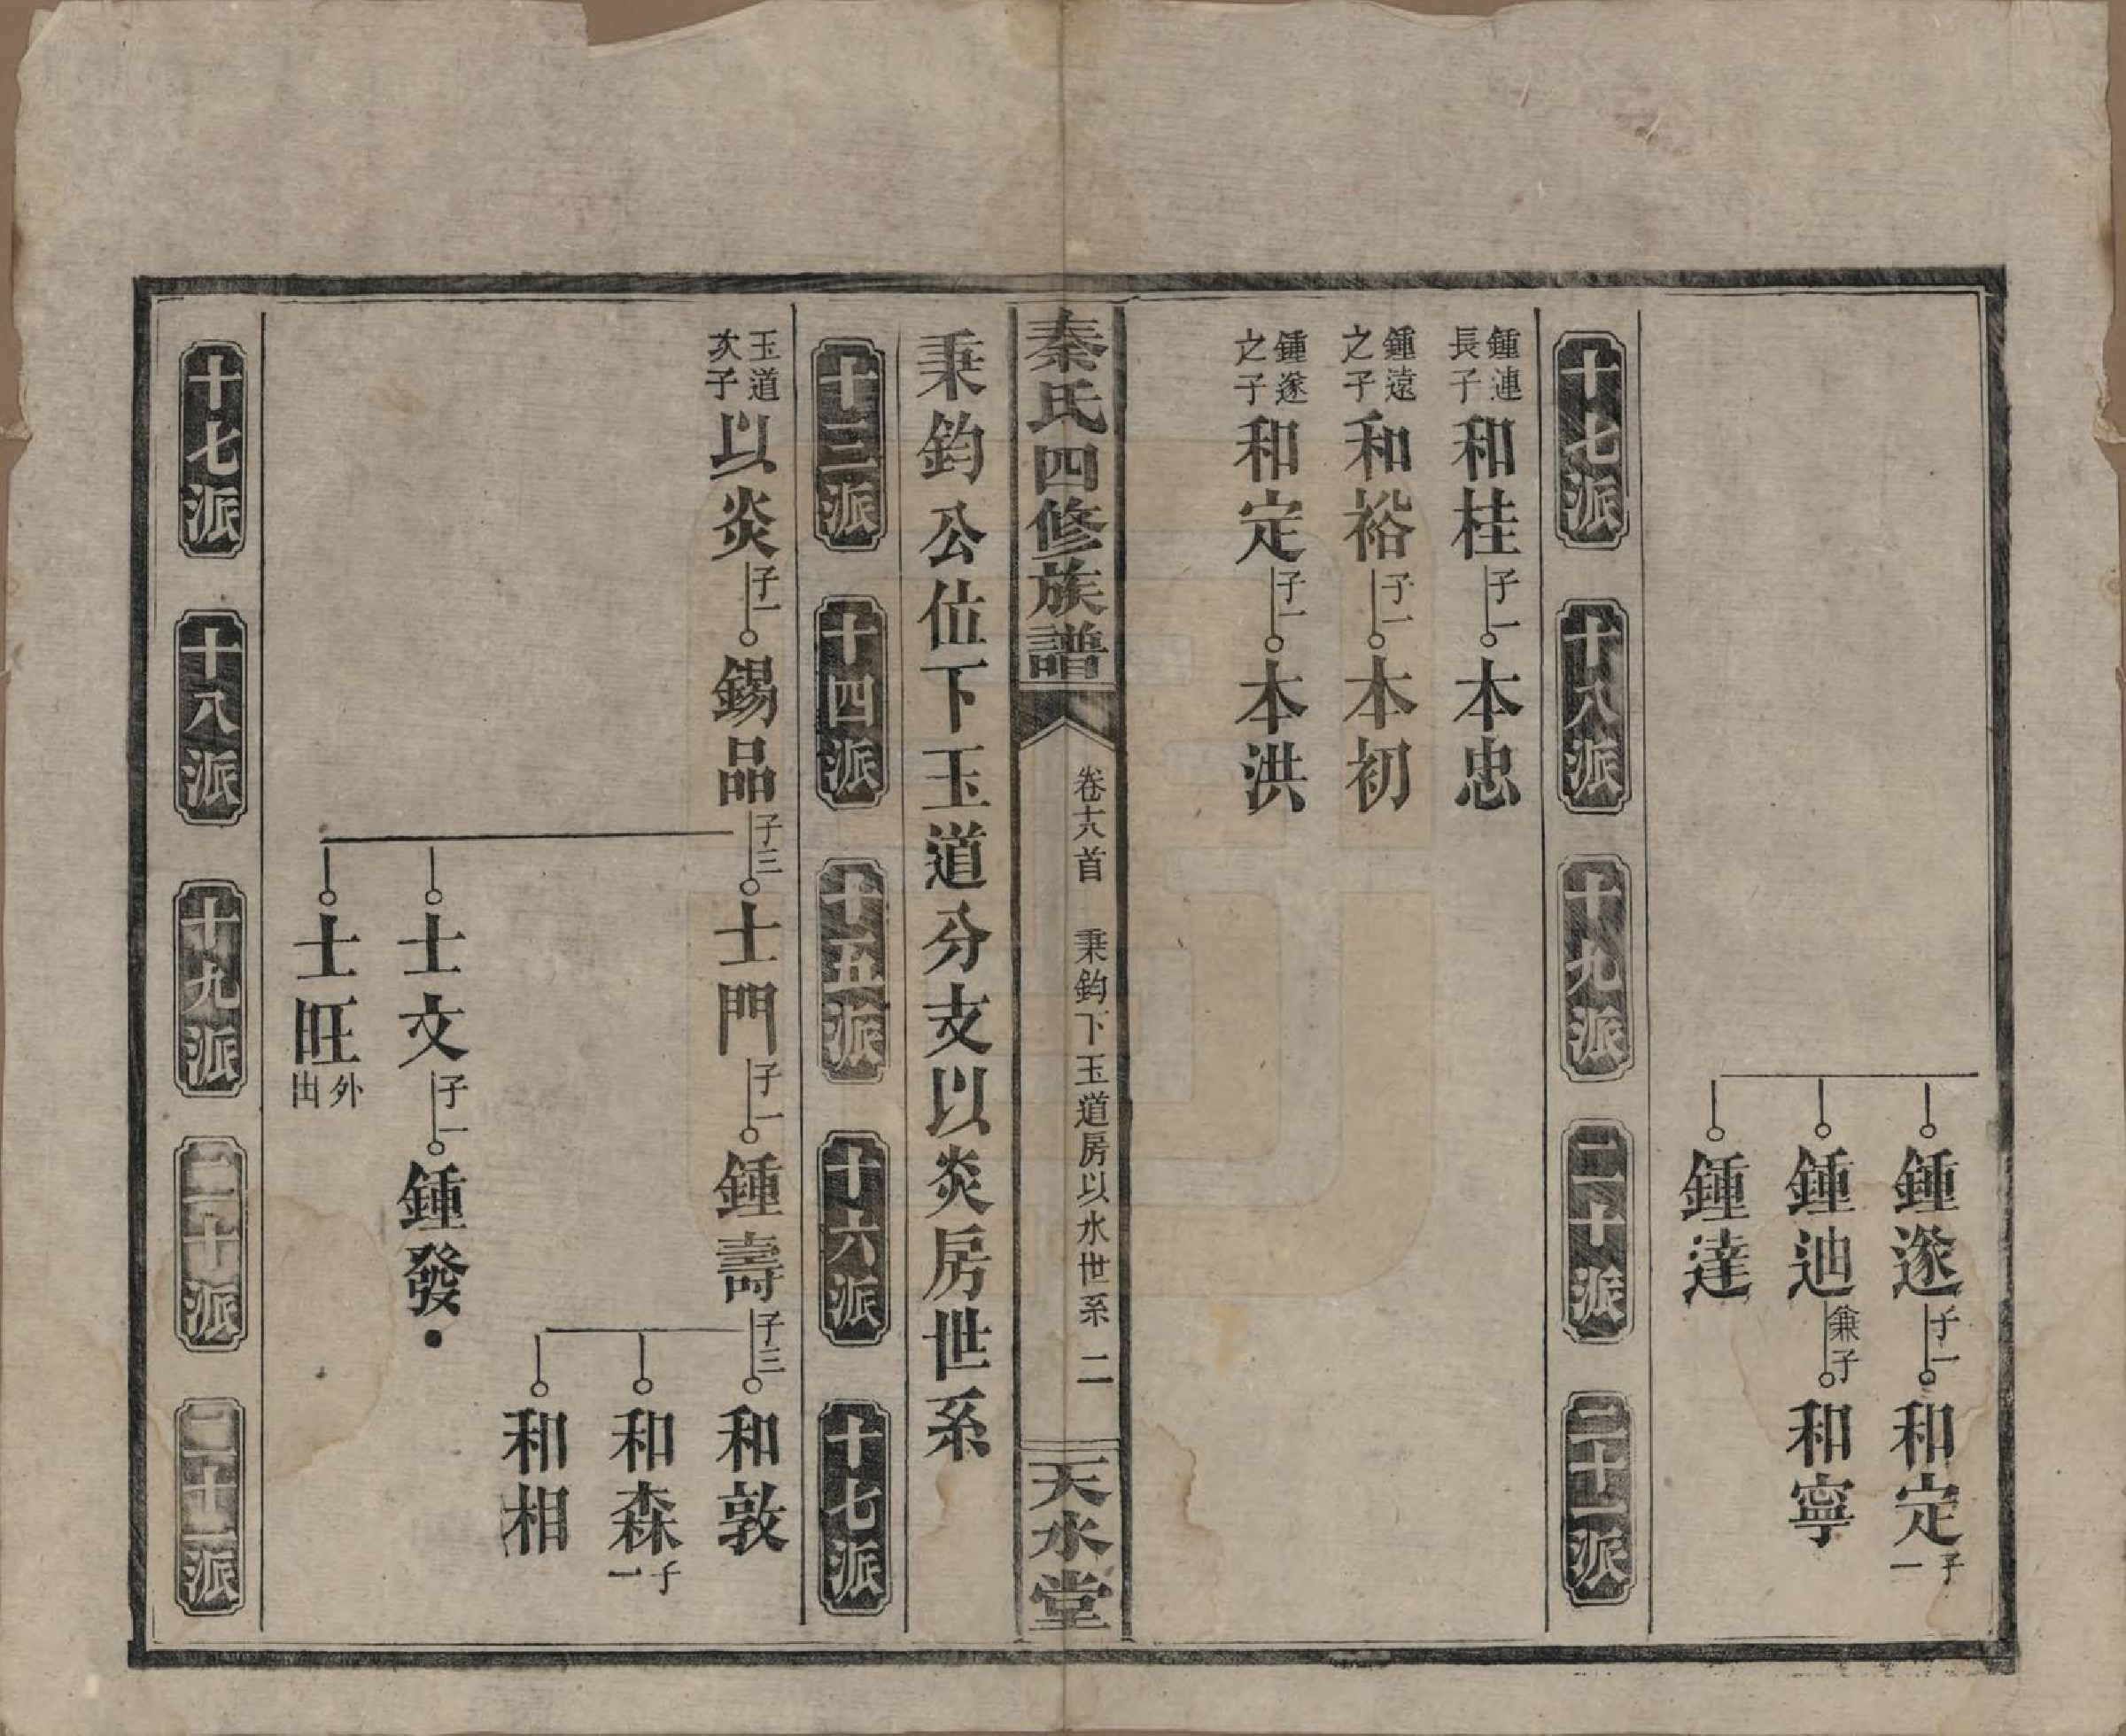 鍾遂 子一 和定 子一
鍾迆 兼子 和寧
鍾達
十七派 十八派 十九派 二十派 二十一派
鍾連長子 和桂 子一 本忠
鍾遠之子 和裕 子一 本初
鍾遂之子 和定 子一 本洪
秦氏四修族譜 卷十六首 秉鈞下玉道房以水世系 二 天水堂
秉鈞公位下玉道分支以炎房世系
十三派 十四派 十五派 十六派 十七派
玉道次子 以炎 子一 錫品 子三 士門 子一 鍾壽 子三 和敦
和森 子一
和相
士文 子一 鍾發
士旺 外出
十七派 十八派 十九派 二十派 二十一派